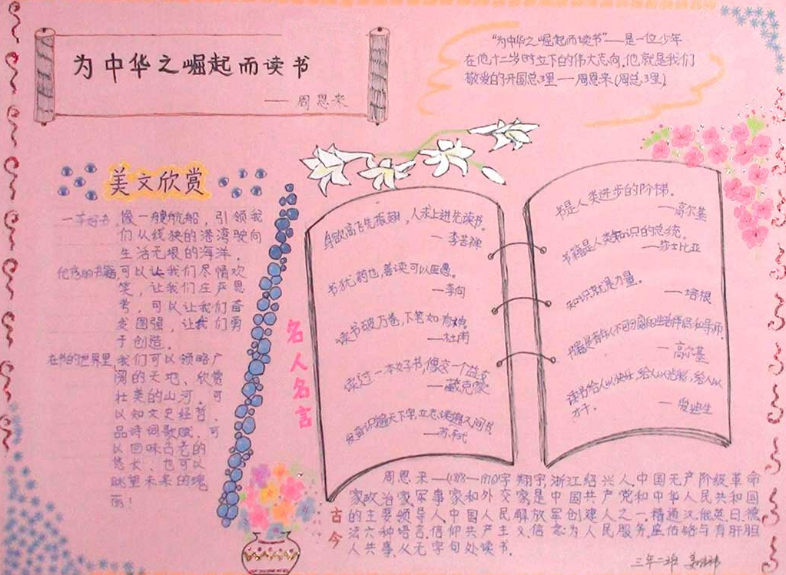 为中华之崛起而读书
——周恩来
“为中华之崛起而读书”——是一位少年
在他十二岁时立下的伟大志向,他就是我们
敬爱的开国总理——周恩来(周总理)
美文欣赏
一本好书,像一艘航船,引领我
们从狭隘的港湾驶向
生活无垠的海洋。
优秀的书籍,可以让我们尽情欢
笑,让我们庄严思
考,可以让我们奋
发图强,让我们勇
于创造。
在书的世界里,我们可以领略广
阔的天地、欣赏
壮美的山河。可
以知文史经哲,
品诗词歌赋,可
以回味古老的
悠长,也可以
眺望未来的瑰
丽!
名人名言
鸟欲高飞先振翅,人求上进先读书。
——李苦禅
书犹药也,善读可以医愚。
——刘向
读书破万卷,下笔如有神。
——杜甫
读过一本好书,像交一个益友
——臧克家
发奋识遍天下字,立志读遍人间书。
——苏轼
书是人类进步的阶梯。
——高尔基
书籍是人类知识的总统。
——莎士比亚
知识就是力量。
——培根
书籍是青年人不可分离的生活伴侣和导师。
——高尔基
读书给人以快乐,给人以光彩,给人以
才干。
古今
周恩来——(1898—1976)字翔宇,浙江绍兴人,中国无产阶级革命
家政治家军事家和外交家是中国共产党和中华人民共和国
的主要领导人,中国人民解放军创建人之一,精通汉、俄、英、日、德
法六种语言,信仰共产主义,信念为人民服务,
人共事,从无字句处读书。
三年二班